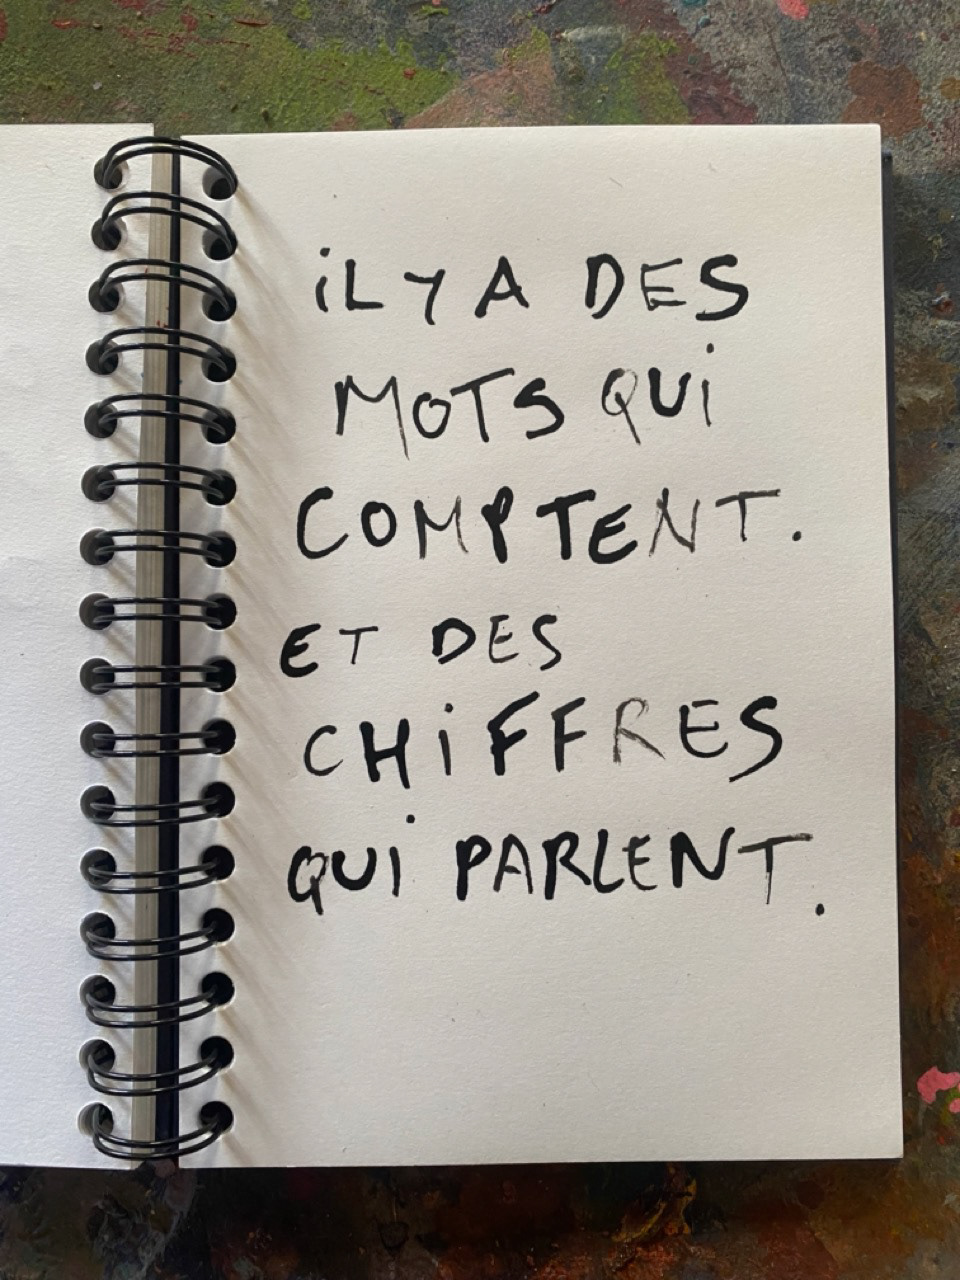 iL Y A DES
MOTS QUi
COMPTENT.
ET DES
CHiFFRES
QUi PARLENT.